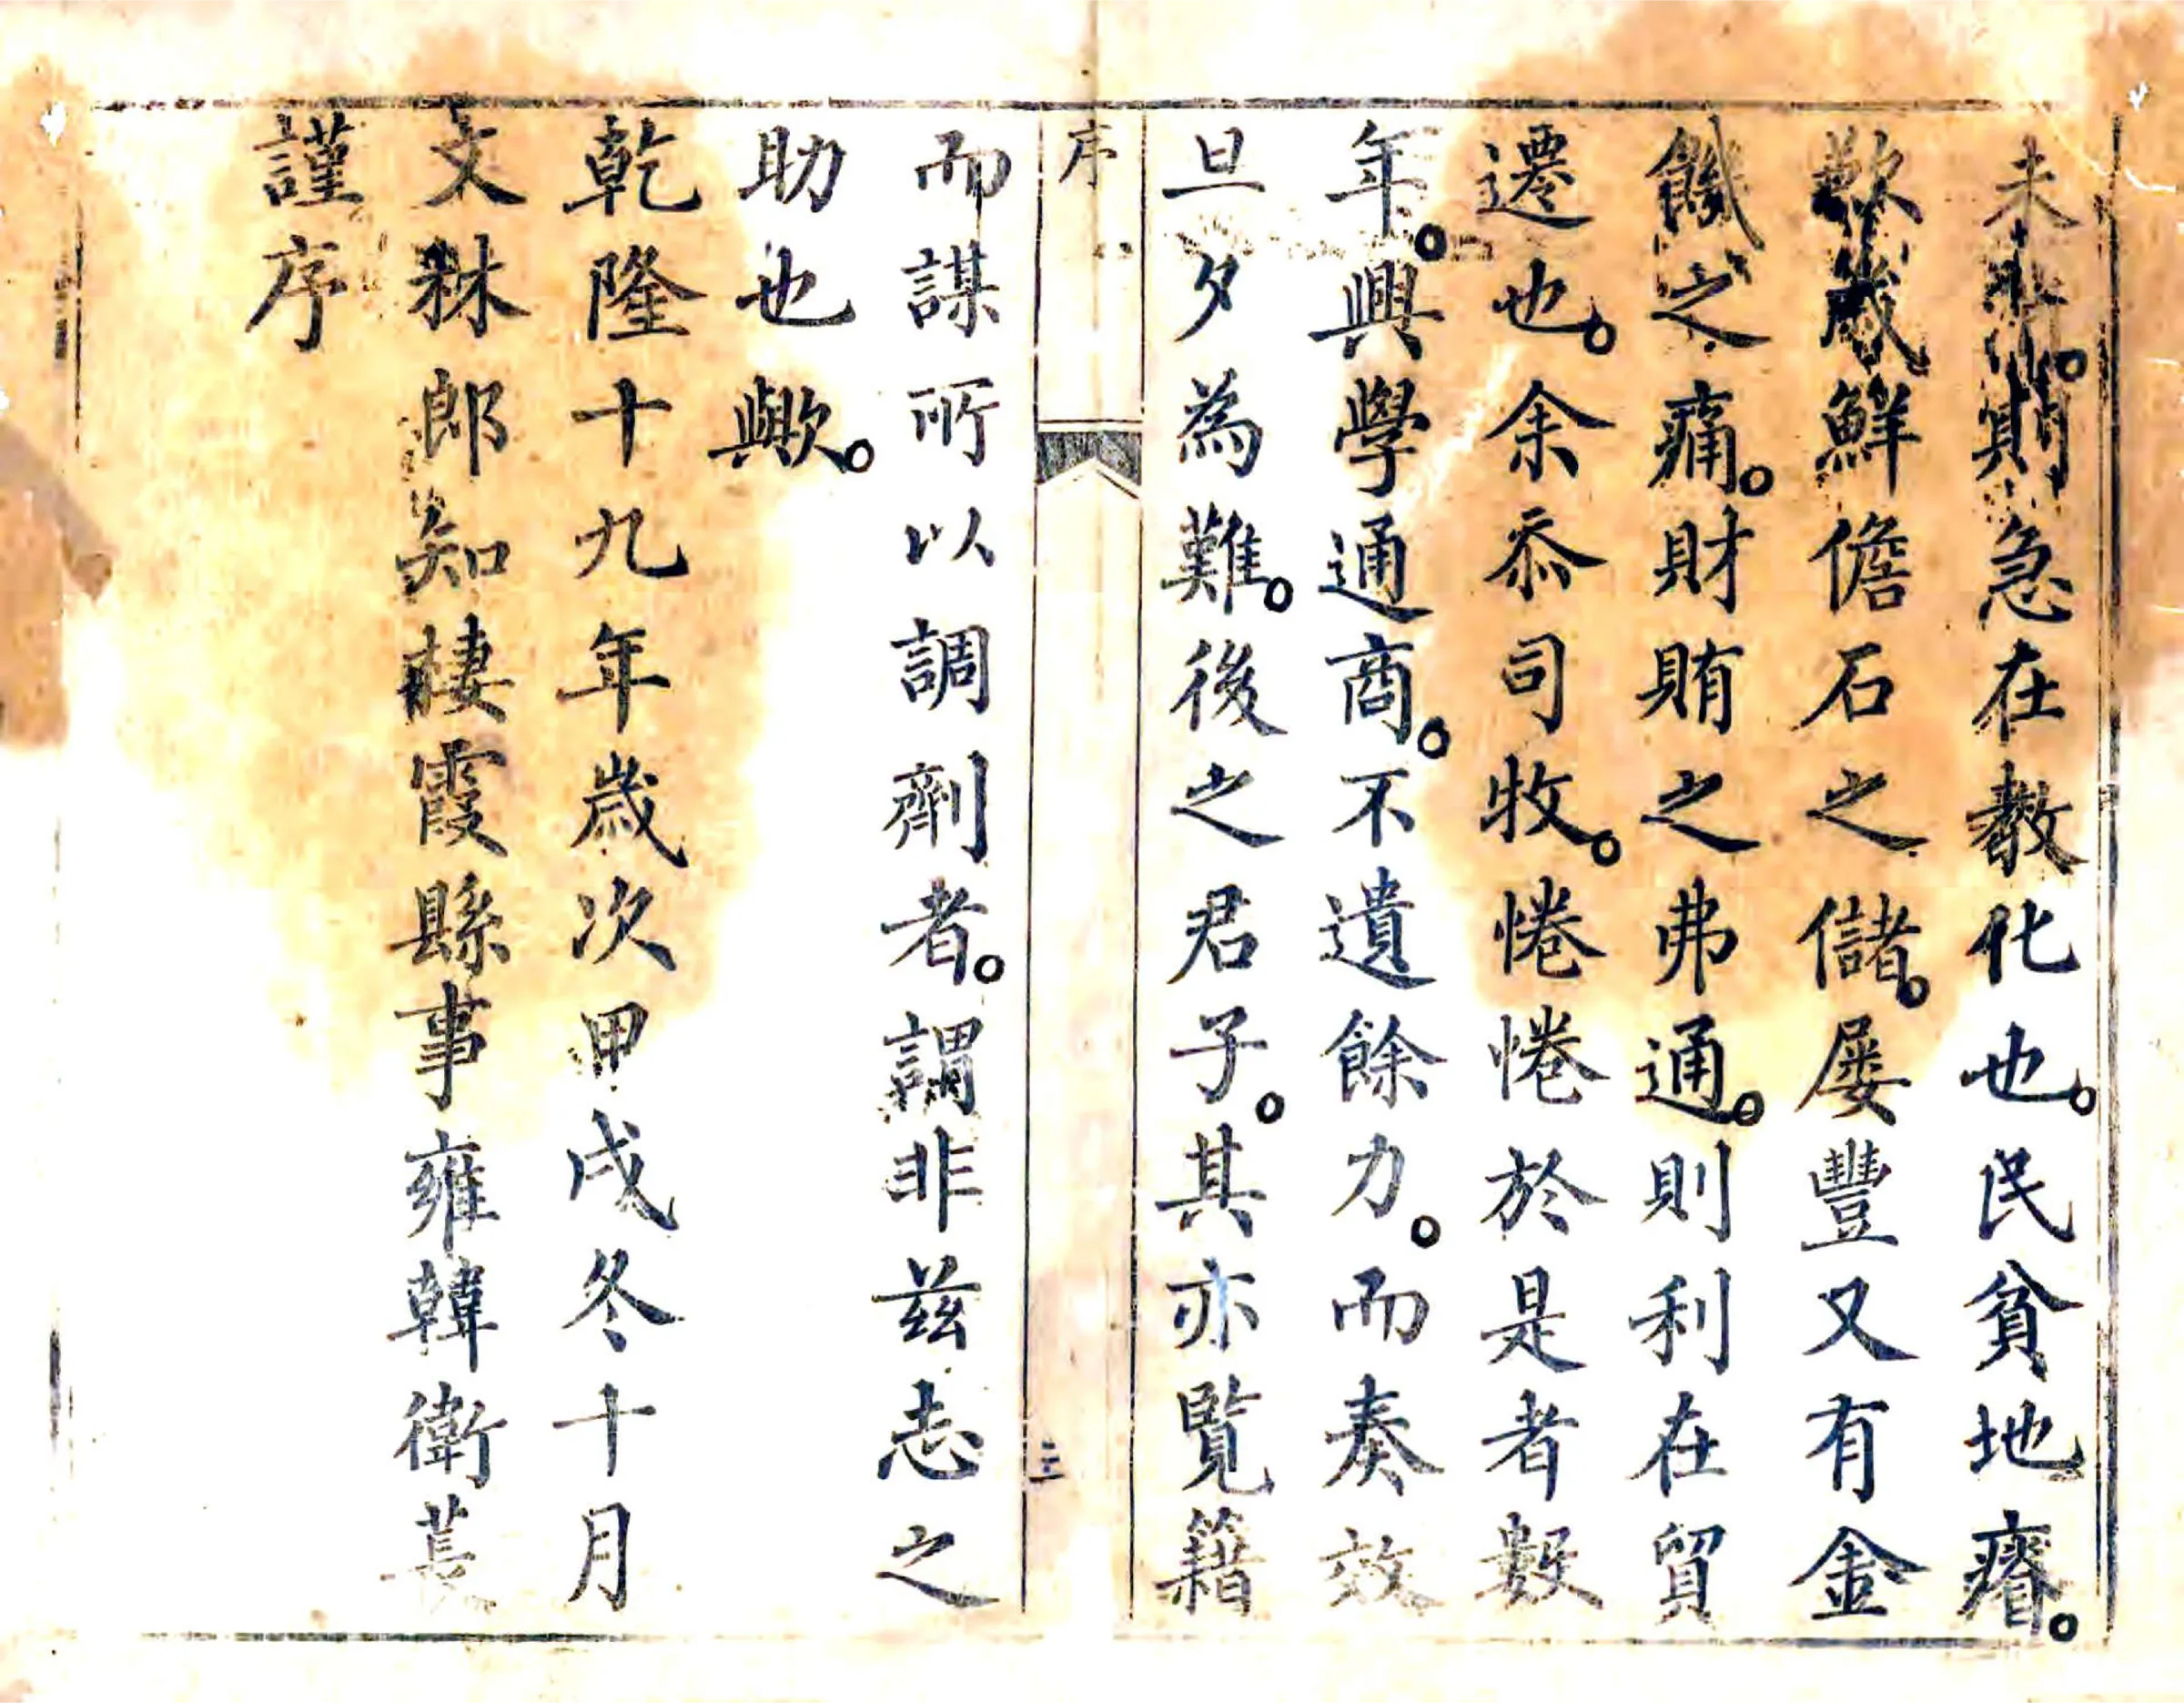 未則急在教化也。民貧地瘠。
歉歲鮮儋石之儲。屡豐又有金
饑之痛。財賄之弗通。則利在貿
遷也。余忝司牧。惓惓於是者數
年。興學通商。不遺餘力。而奏效
旦夕為難。後之君子。其亦覧籍
序
三
而謀所以調劑者。謂非兹志之
助也歟。
乾隆十九年歲次甲戌冬十月
文林郎知棲霞縣事雍韓衛萇
謹序